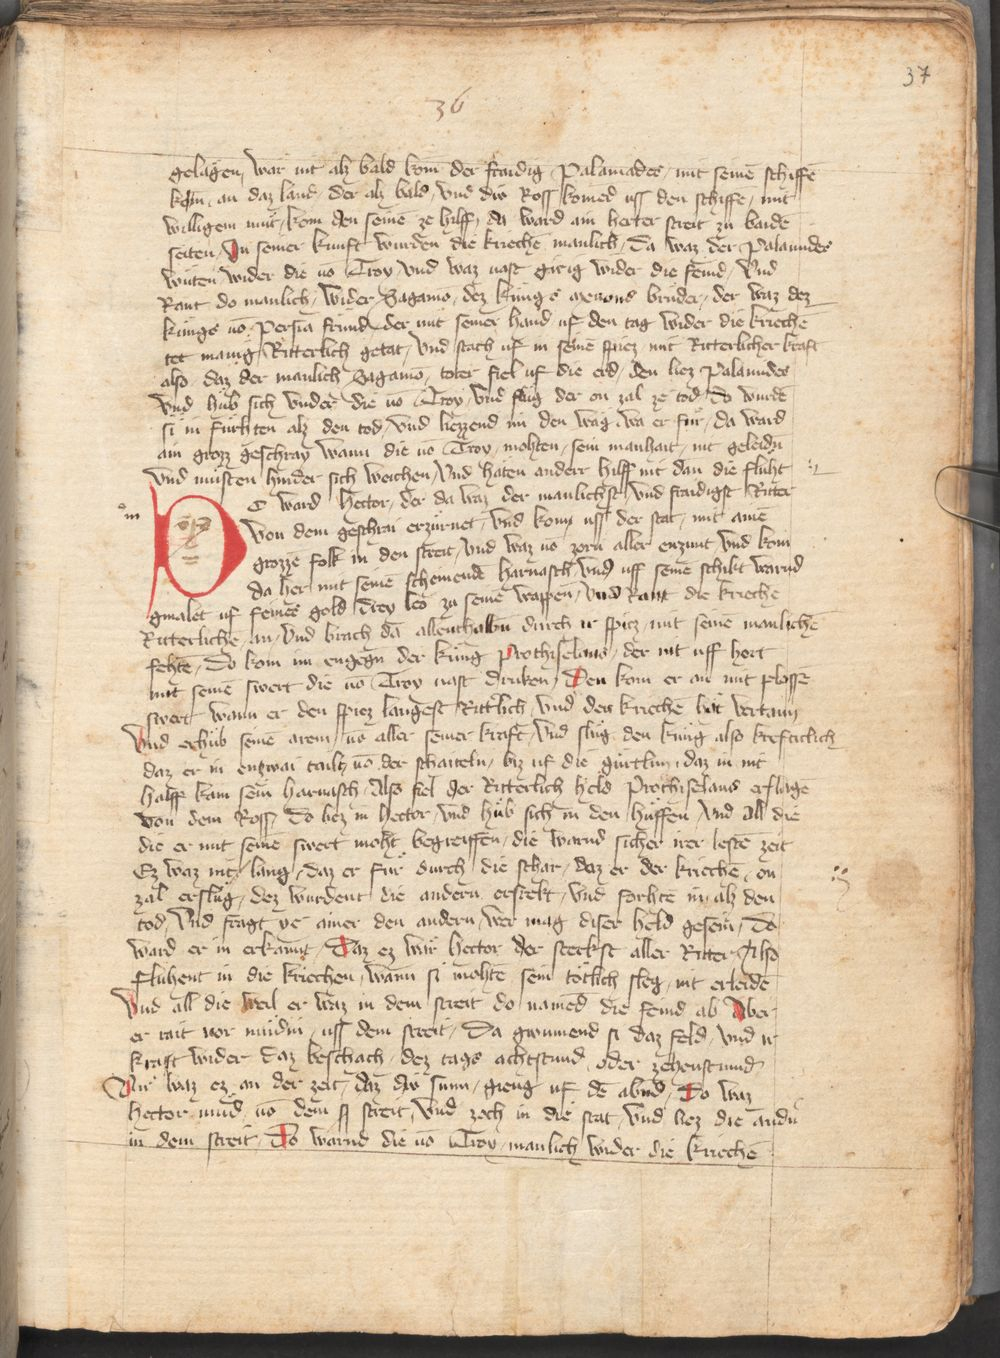 37
36
gelägen, wär nit alz bald kom̄ der fraidig Palamades, mit seinē schiffē
kom, an daz land, der alz bald, vnd diw Ross komēd uss den schiffē, mit
willigem mut, kom den seinē ze hilff, da ward ain herter streit zu baidē
seiten, In seiner kunft wurden die kriechē manlich, Da waz der Palamides
wüten wider die uō Troy, vnd waz uast girig wider die feind, Vnd
Rant do manlich, wider Sagamo, dez kungs menons bruder, der waz dez
kungs uō Persia frund, der mit seiner hand, uf den tag wider die kriechē
tet manig Ritterlich getat, vnd stach uf in seinē spiez, mit Ritterlicher kraft
also, daz der manlich Sagamō, toter fiel uf die erd, den liez Palamides
vnd hub sich vnder die uō Troy, vnd slug der on zal ze tod, do wurdē
si in furhten alz den tod, vnd liezzend im den wäg, wa er fur, da ward
ain grozz geschray wann die uō Troy, mohten, sein manhait, nit geleidn
vnd musten hinder sich weichen, Vnd haten anderr hilff nit dan die fluht
m
DO ward Hector, der da waz der manlichst vnd fraidigst Ritter
von dem geschrai erzurnet, vnd kom uss der stat, mit ainē
grozzē folk in den streit, vnd waz uō zorn aller enzunt, vnd kom
da her mit seinē scheinendē harnasch, vnd uff seinē schilt warnd
gmalet uf feines gold drey leo zu seinē wappen, vnd Rant die kriechē
Ritterlichē an, vnd brach da allenthalbn durch ir spicz, mit seinē manlichē
fehtē, Do kom im engegn der kung Prothiselaus, der nit uff hort
mit seinē swert die uō Troy uast druken, Den kom er an mit plossē
swert wann er den spiez langest Rittlich, vnd den kriechē hāt vertann
Vnd erhub seinē arem, uō aller seiner kraft, vnd slug, den kung also kreftclich
daz er in enzwai tailt, uō der schaiteln, biz uf die gurtlin, daz in nit
halff kam sein harnasch, Also fiel der Ritterlich held Prothiselaus erslagē
von dem Ross, Do liez in Hector, vnd hub sich in den huffen, Vnd all die
die er mit seinē swert moht begreiffen, die warnd sicher irer lestē zeit
Ez waz nit lang, daz er fur durch die schar, daz er der kriechē, on
zal erslug, dez wurdent die andern erstekt, vnd forhtē in, alz den
tod, vnd fragt ye ainer den andern, wer mag diser held gesein, Do
ward er in erkannt, Daz ez wär Hector der sterkst aller Ritter, Also
fluhent in die kriechen, wann si mohtē sein totlich sleg, nit erleidē
Vnd all die weil er waz in dem streit do namēd die feind ab Aber
er rait vor mudin, uss dem streit, Da gwunnend si daz feld, vnd ir
kraft wider daz beschach, dez tags achtstund oder zehenstund
Nu waz ez an der zeit, daz diw sunn, gieng uf dē abnd, Do waz
Hector mud, uō dem streit, vnd zoch in die stat, vnd liez die andn
in dem streit, Do warnd die uō Troy, manlich wider die kriechē